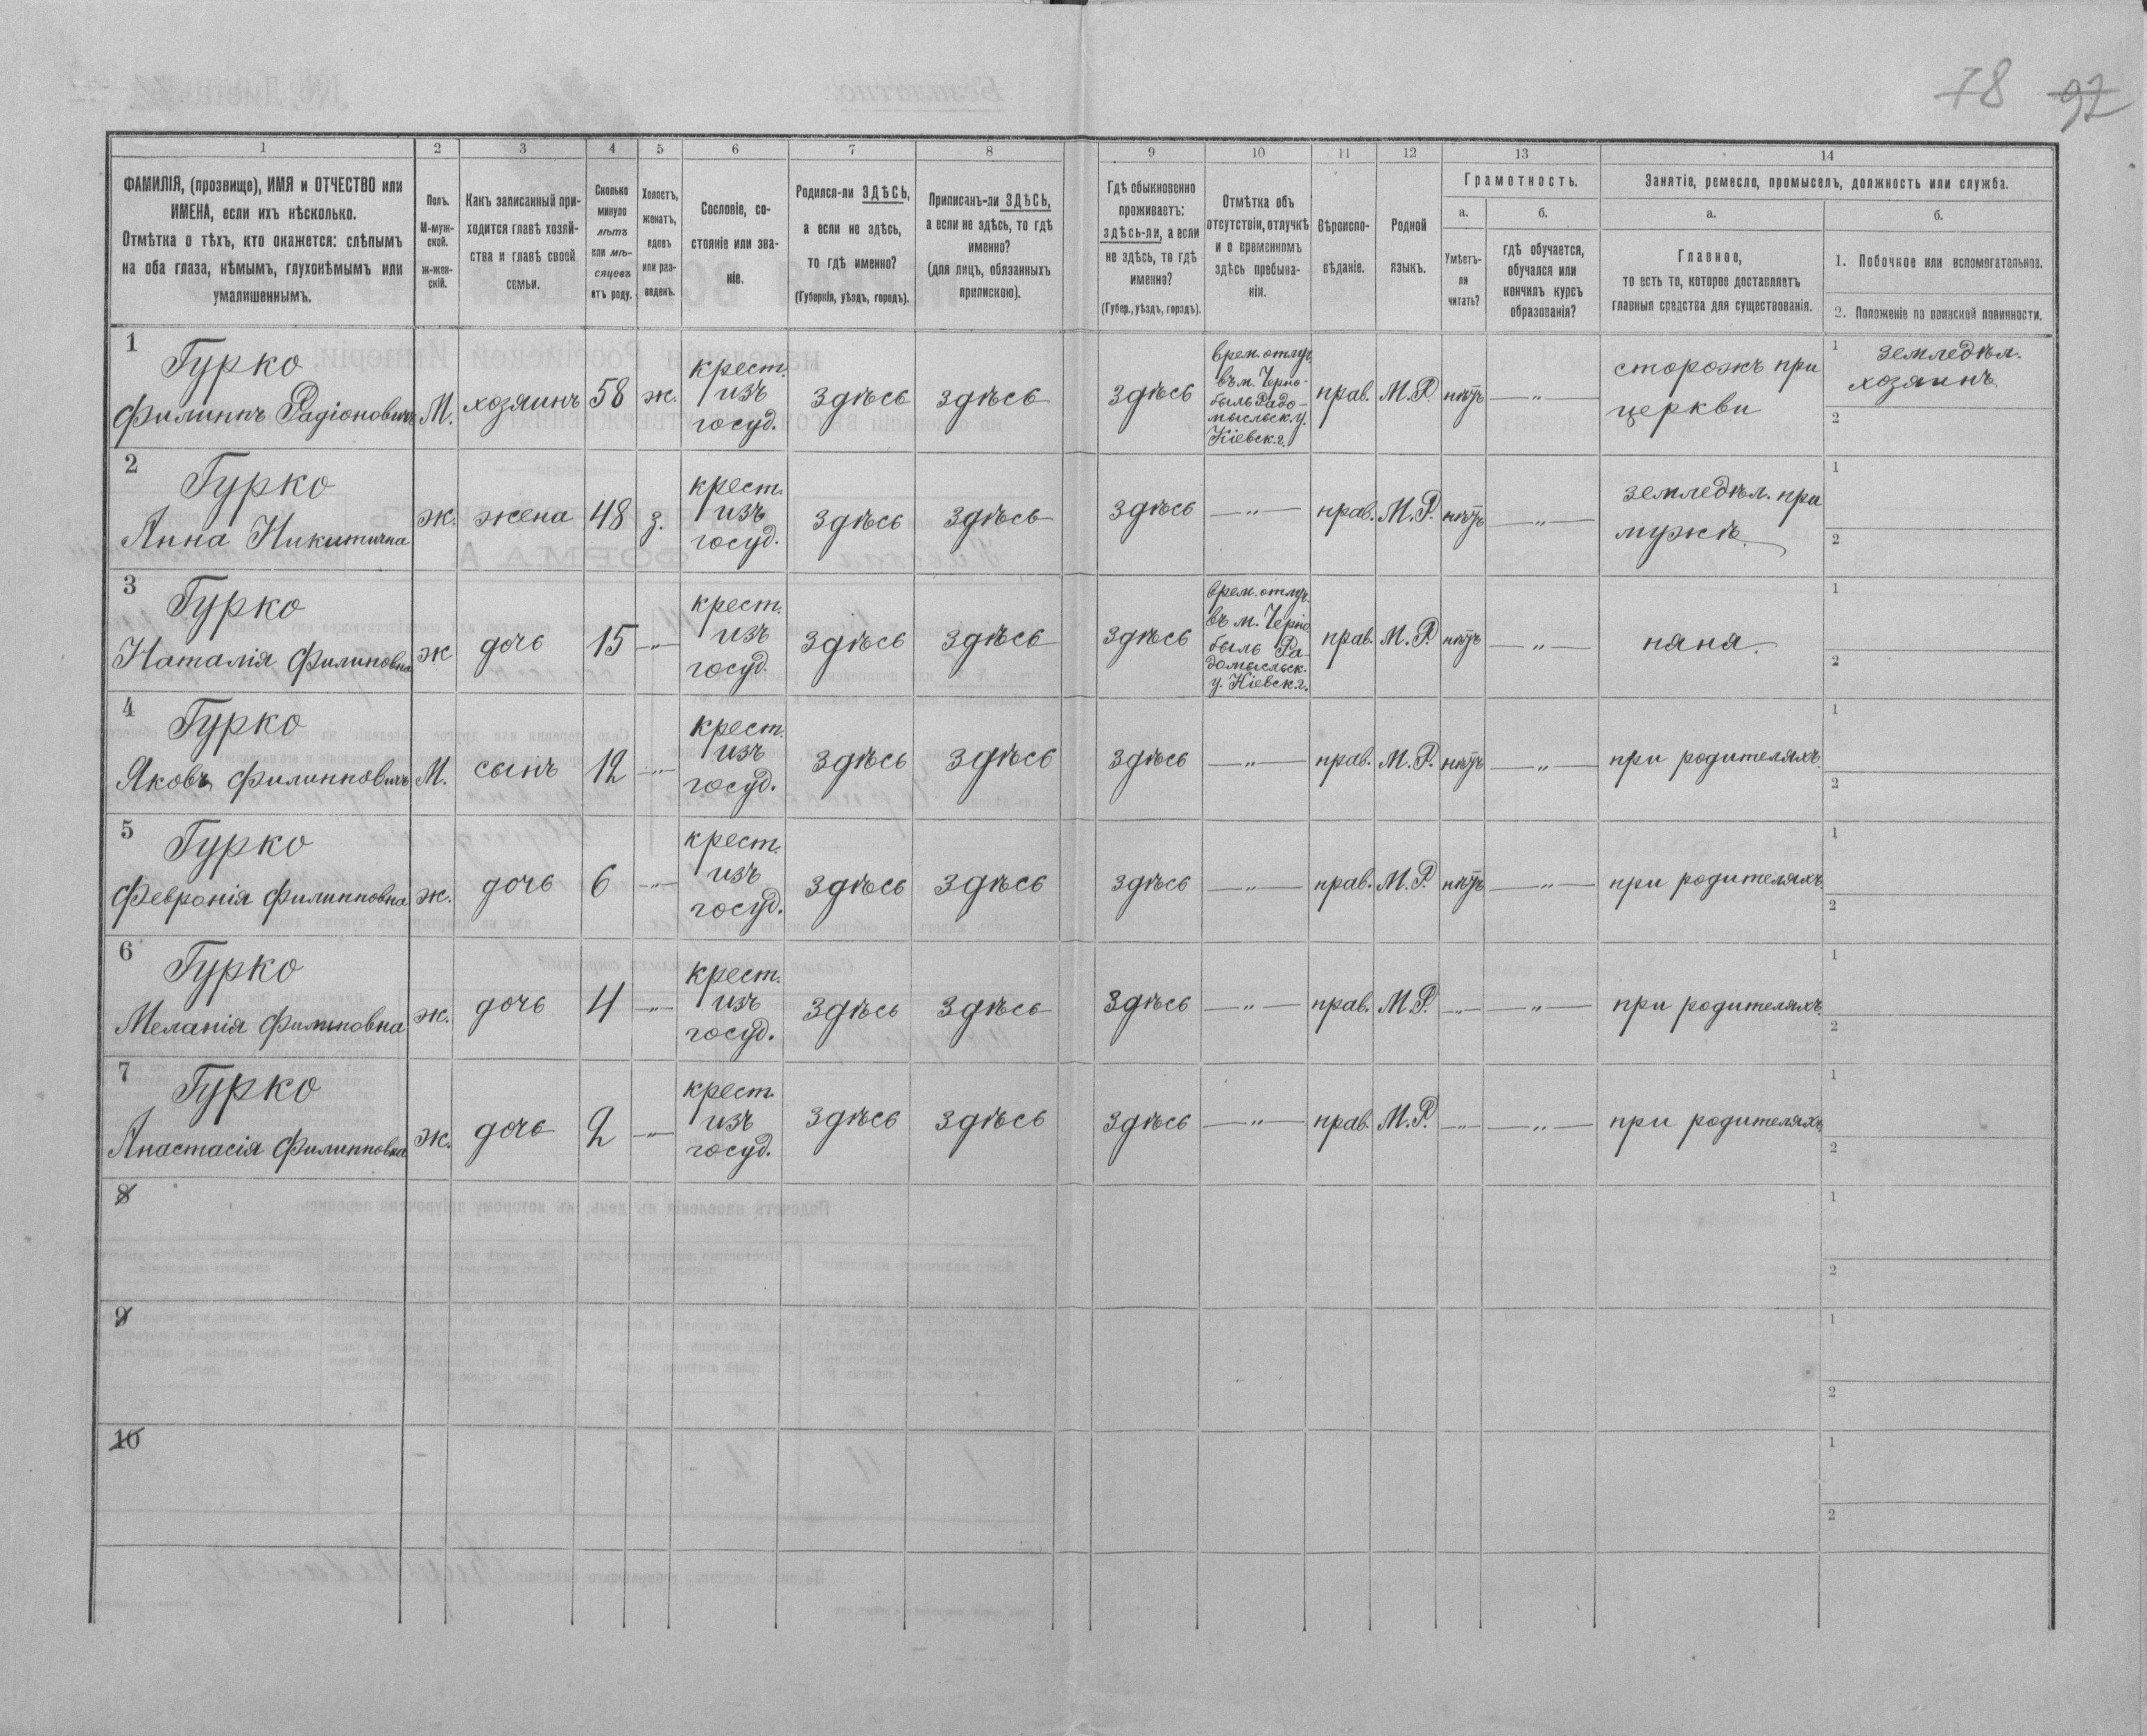 78 97
1 2 3 4 5 6 7 8 9 10 11 12 13 14
ФАМИЛІЯ, (прозвище), ИМЯ и ОТЧЕСТВО или
ИМЕНА, если ихъ нѣсколько.
Отмѣтка о тѣхъ, кто окажется: слѣпымъ
на оба глаза, нѣмымъ, глухонѣмымъ или
умалишеннымъ.
Полъ.
М-муж-
ской.
Ж-жен-
скій.
Какъ записанный при-
ходится главѣ хозяй-
ства и главѣ своей
семьи.
Сколько
минуло
лѣтъ
или мѣ-
сяцевъ
отъ роду.
Холостъ,
женатъ,
вдовъ
или раз-
веденъ.
Сословіе, со-
стояніе или зва-
ніе.
Родился-ли ЗДѢСЬ,
а если не здѣсь,
то гдѣ именно?
(Губернія, уѣздъ, городъ).
Приписанъ-ли ЗДѢСЬ,
а если не здѣсь, то гдѣ
именно?
(для лицъ, обязанныхъ
припискою).
Гдѣ обыкновенно
проживаетъ:
здѣсь-ли, а если
не здѣсь, то гдѣ
именно?
(Губер., уѣздъ, городъ).
Отмѣтка объ
отсутствіи, отлучкѣ
и о временномъ
здѣсь пребыва-
ніи.
Вѣроиспо-
вѣданіе.
Родной
языкъ.
Грамотность.
а.
Умѣетъ-
ли
читать?
б.
гдѣ обучается,
обучался или
кончилъ курсъ
образованія?
Занятіе, ремесло, промыселъ, должность или служба.
а.
Главное,
то есть то, которое доставляетъ
главныя средства для существованія.
б.
1. Побочное или вспомогательное.
2. Положеніе по воинской повинности.
1
Гурко
Филиппъ Радіоновичъ
М.
хозяинъ
58
ж.
крест.
изъ
госуд.
здѣсь
здѣсь
здѣсь
врем. отлуч.
въ м. Черно-
быль Радо-
мысльск. у.
Кіевск. г.
прав.
М. Р.
нѣтъ
— „ —
сторожъ при
церкви
1 земледѣл.
хозяинъ
2
2
Гурко
Анна Никитична
ж.
жена
48
з.
крест.
изъ
госуд.
здѣсь
здѣсь
здѣсь
— „ —
прав.
М. Р.
нѣтъ
— „ —
земледѣл. при
мужѣ.
1
2
3
Гурко
Наталія Филиповна
ж
дочь
15
— „ —
крест.
изъ
госуд.
здѣсь
здѣсь
здѣсь
врем. отлуч.
въ м. Черно
быль Ра-
домысльск.
у. Кіевск. г.
прав.
М. Р.
нѣтъ
— „ —
няня.
1
2
4
Гурко
Яковъ Филипповичъ
М.
сынъ
12
— „ —
крест.
изъ
госуд.
здѣсь
здѣсь
здѣсь
— „ —
прав.
М. Р.
нѣтъ
— „ —
при родителяхъ.
1
2
5
Гурко
Февронія Филипповна
ж.
дочь
6
— „ —
крест.
изъ
госуд.
здѣсь
здѣсь
здѣсь
— „ —
прав.
М. Р.
нѣтъ
— „ —
при родителяхъ.
1
2
6
Гурко
Меланія Филиповна
ж.
дочь
4
— „ —
крест.
изъ
госуд.
здѣсь
здѣсь
здѣсь
— „ —
прав.
М. Р.
— „ —
— „ —
при родителяхъ.
1
2
7
Гурко
Анастасія Филипповна
ж.
дочь
2
— „ —
крест.
изъ
госуд.
здѣсь
здѣсь
здѣсь
— „ —
прав.
М. Р.
— „ —
— „ —
при родителяхъ
1
2
8
1
2
9
1
2
10
1
2